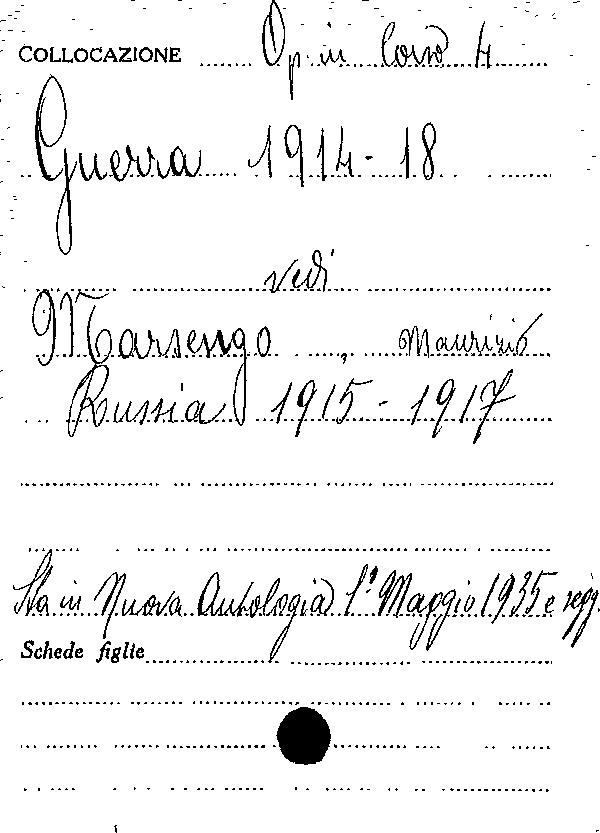 COLLOCAZIONE Op. in Corso 4
Guerra 1914-18
vedi
Marsengo, Maurizio
Russia 1915-1917
Sta in Nuova Antologia 1º Maggio 1935 e segg.
Schede figlie